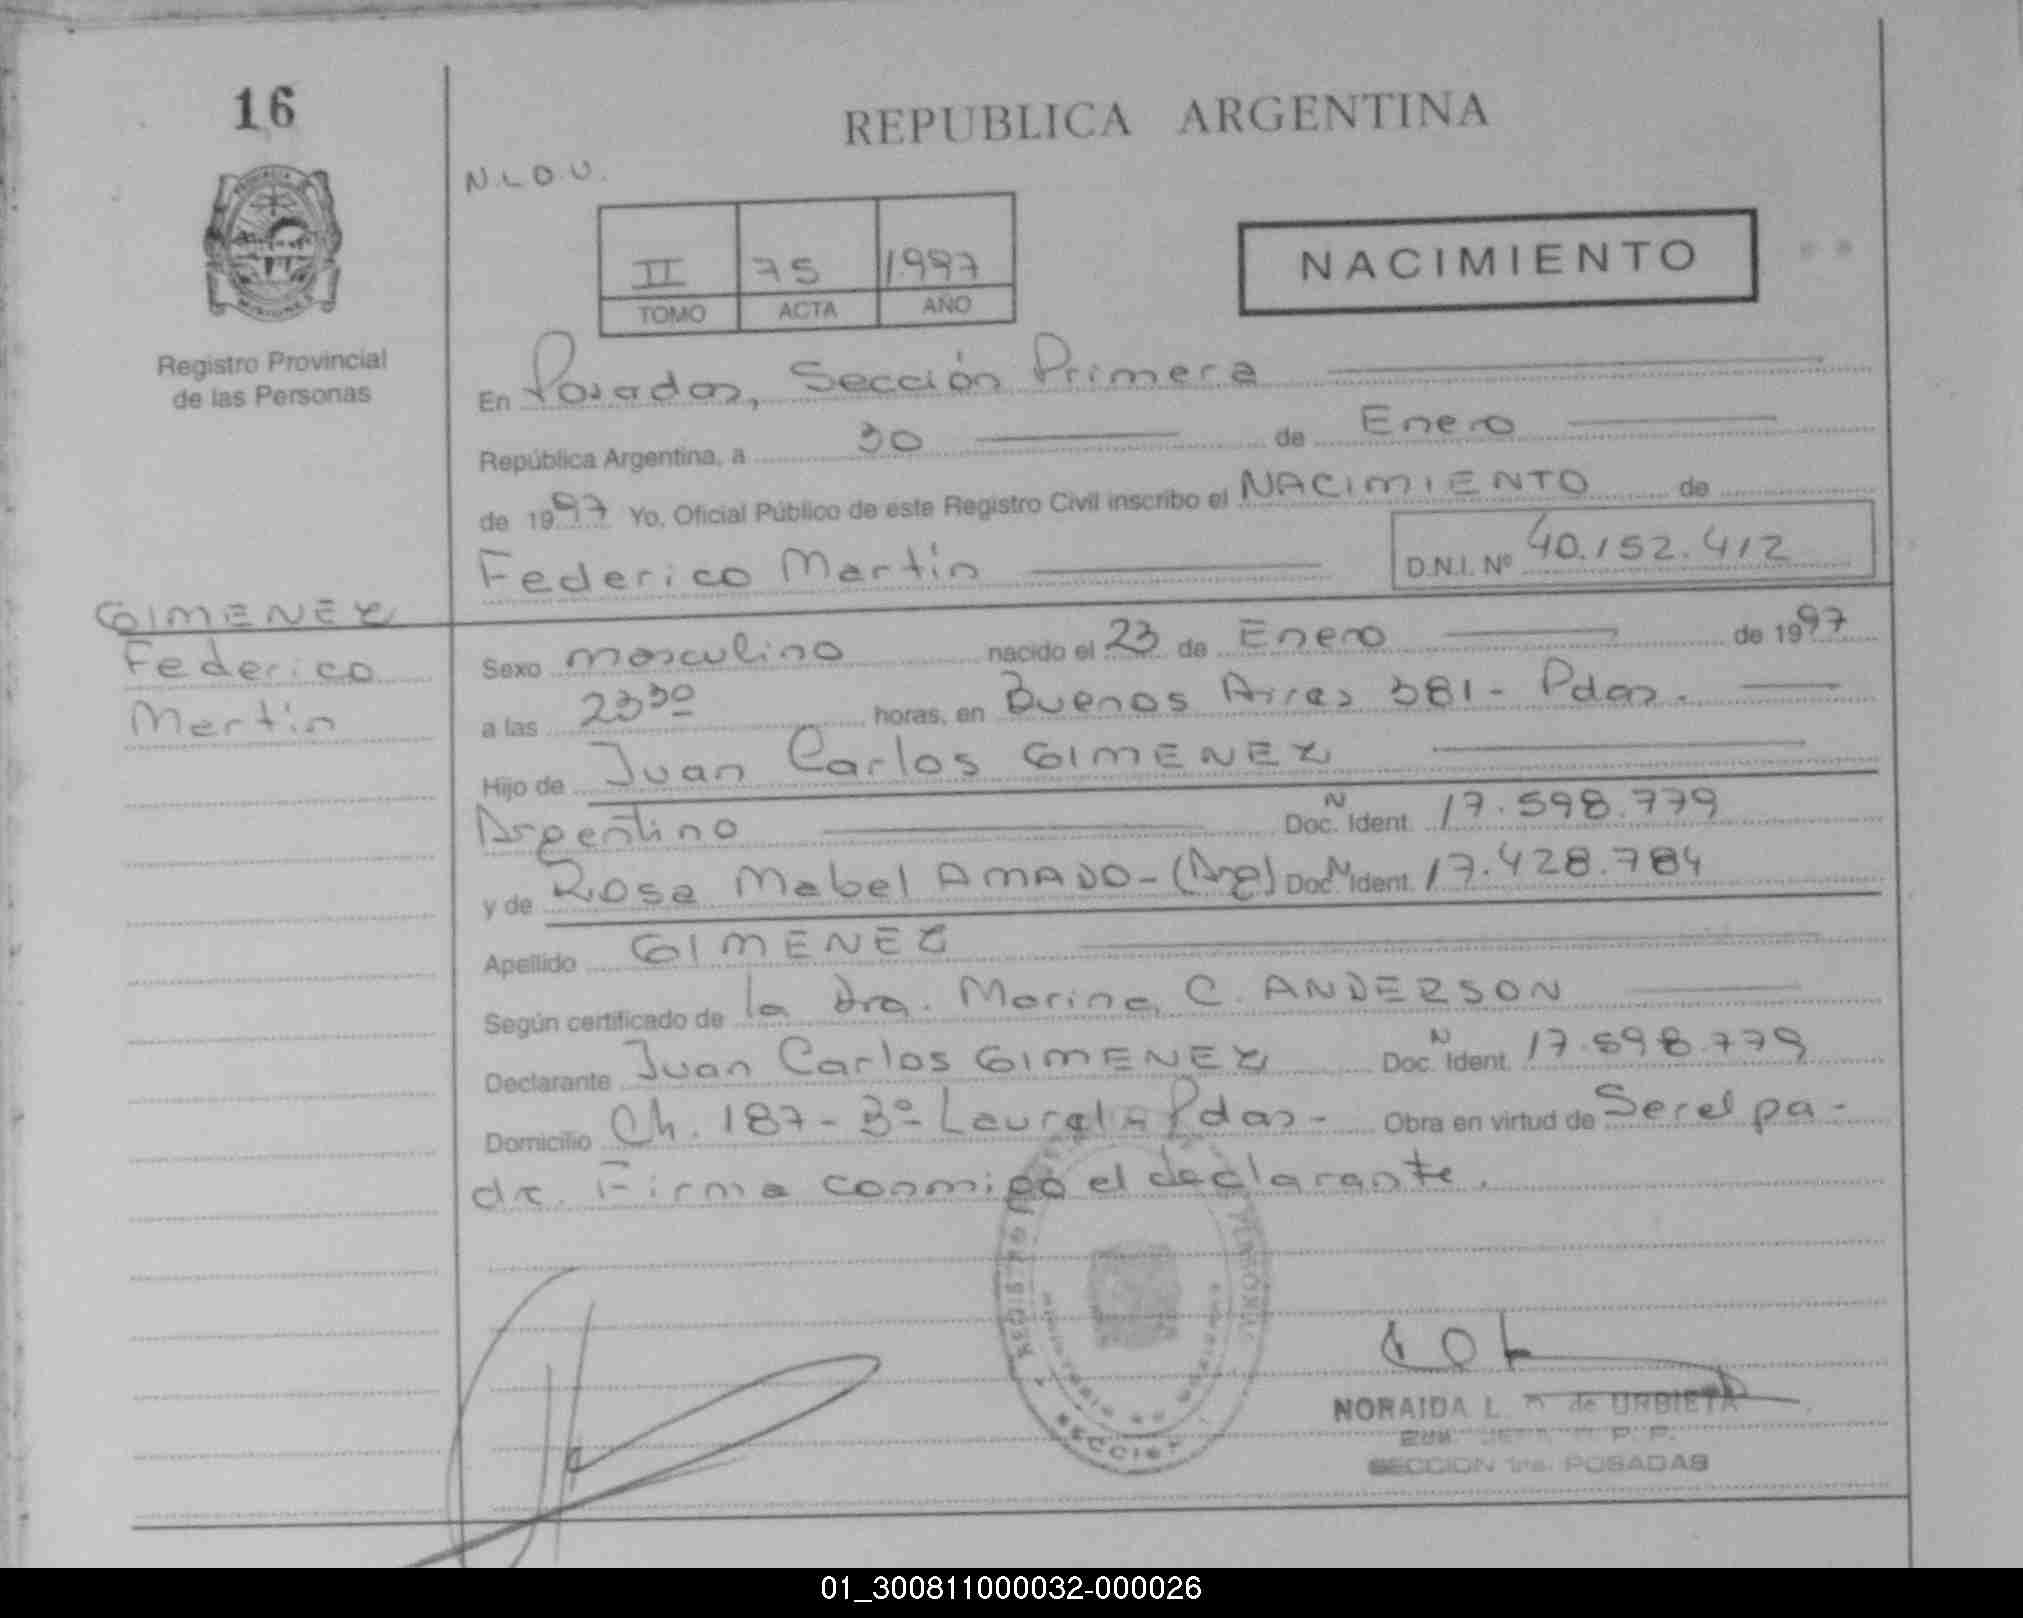 16
REPUBLICA ARGENTINA
N.L.O.U.
II 75 1997
TOMO ACTA AÑO
NACIMIENTO
Registro Provincial
de las Personas
En Posadas, Sección Primera
República Argentina, a 30 de Enero
de 1997 Yo, Oficial Público de este Registro Civil inscribo el NACIMIENTO de
Federico Martín
D.N.I. Nº 40.152.412
GIMENEZ
Federico
Martín
Sexo masculino nacido el 23 de Enero de 1997
a las 23 30 horas, en Buenos Aires 381 - Pdas.
Hijo de Juan Carlos GIMENEZ
Argentino Doc. N Ident. 17.598.779
y de Rosa Mabel AMADO - (Arg) Doc. N Ident. 17.428.784
Apellido GIMENEZ
Según certificado de la Dra. Marina C. ANDERSON
Declarante Juan Carlos GIMENEZ Doc. N Ident. 17.598.779
Domicilio Ch. 187 - Bº Laurel - Pdas - Obra en virtud de Ser el pa-
dre. Firma conmigo el declarante.
NORAIDA L. de URBIETA
SECCION 1ra. POSADAS
01_300811000032-000026